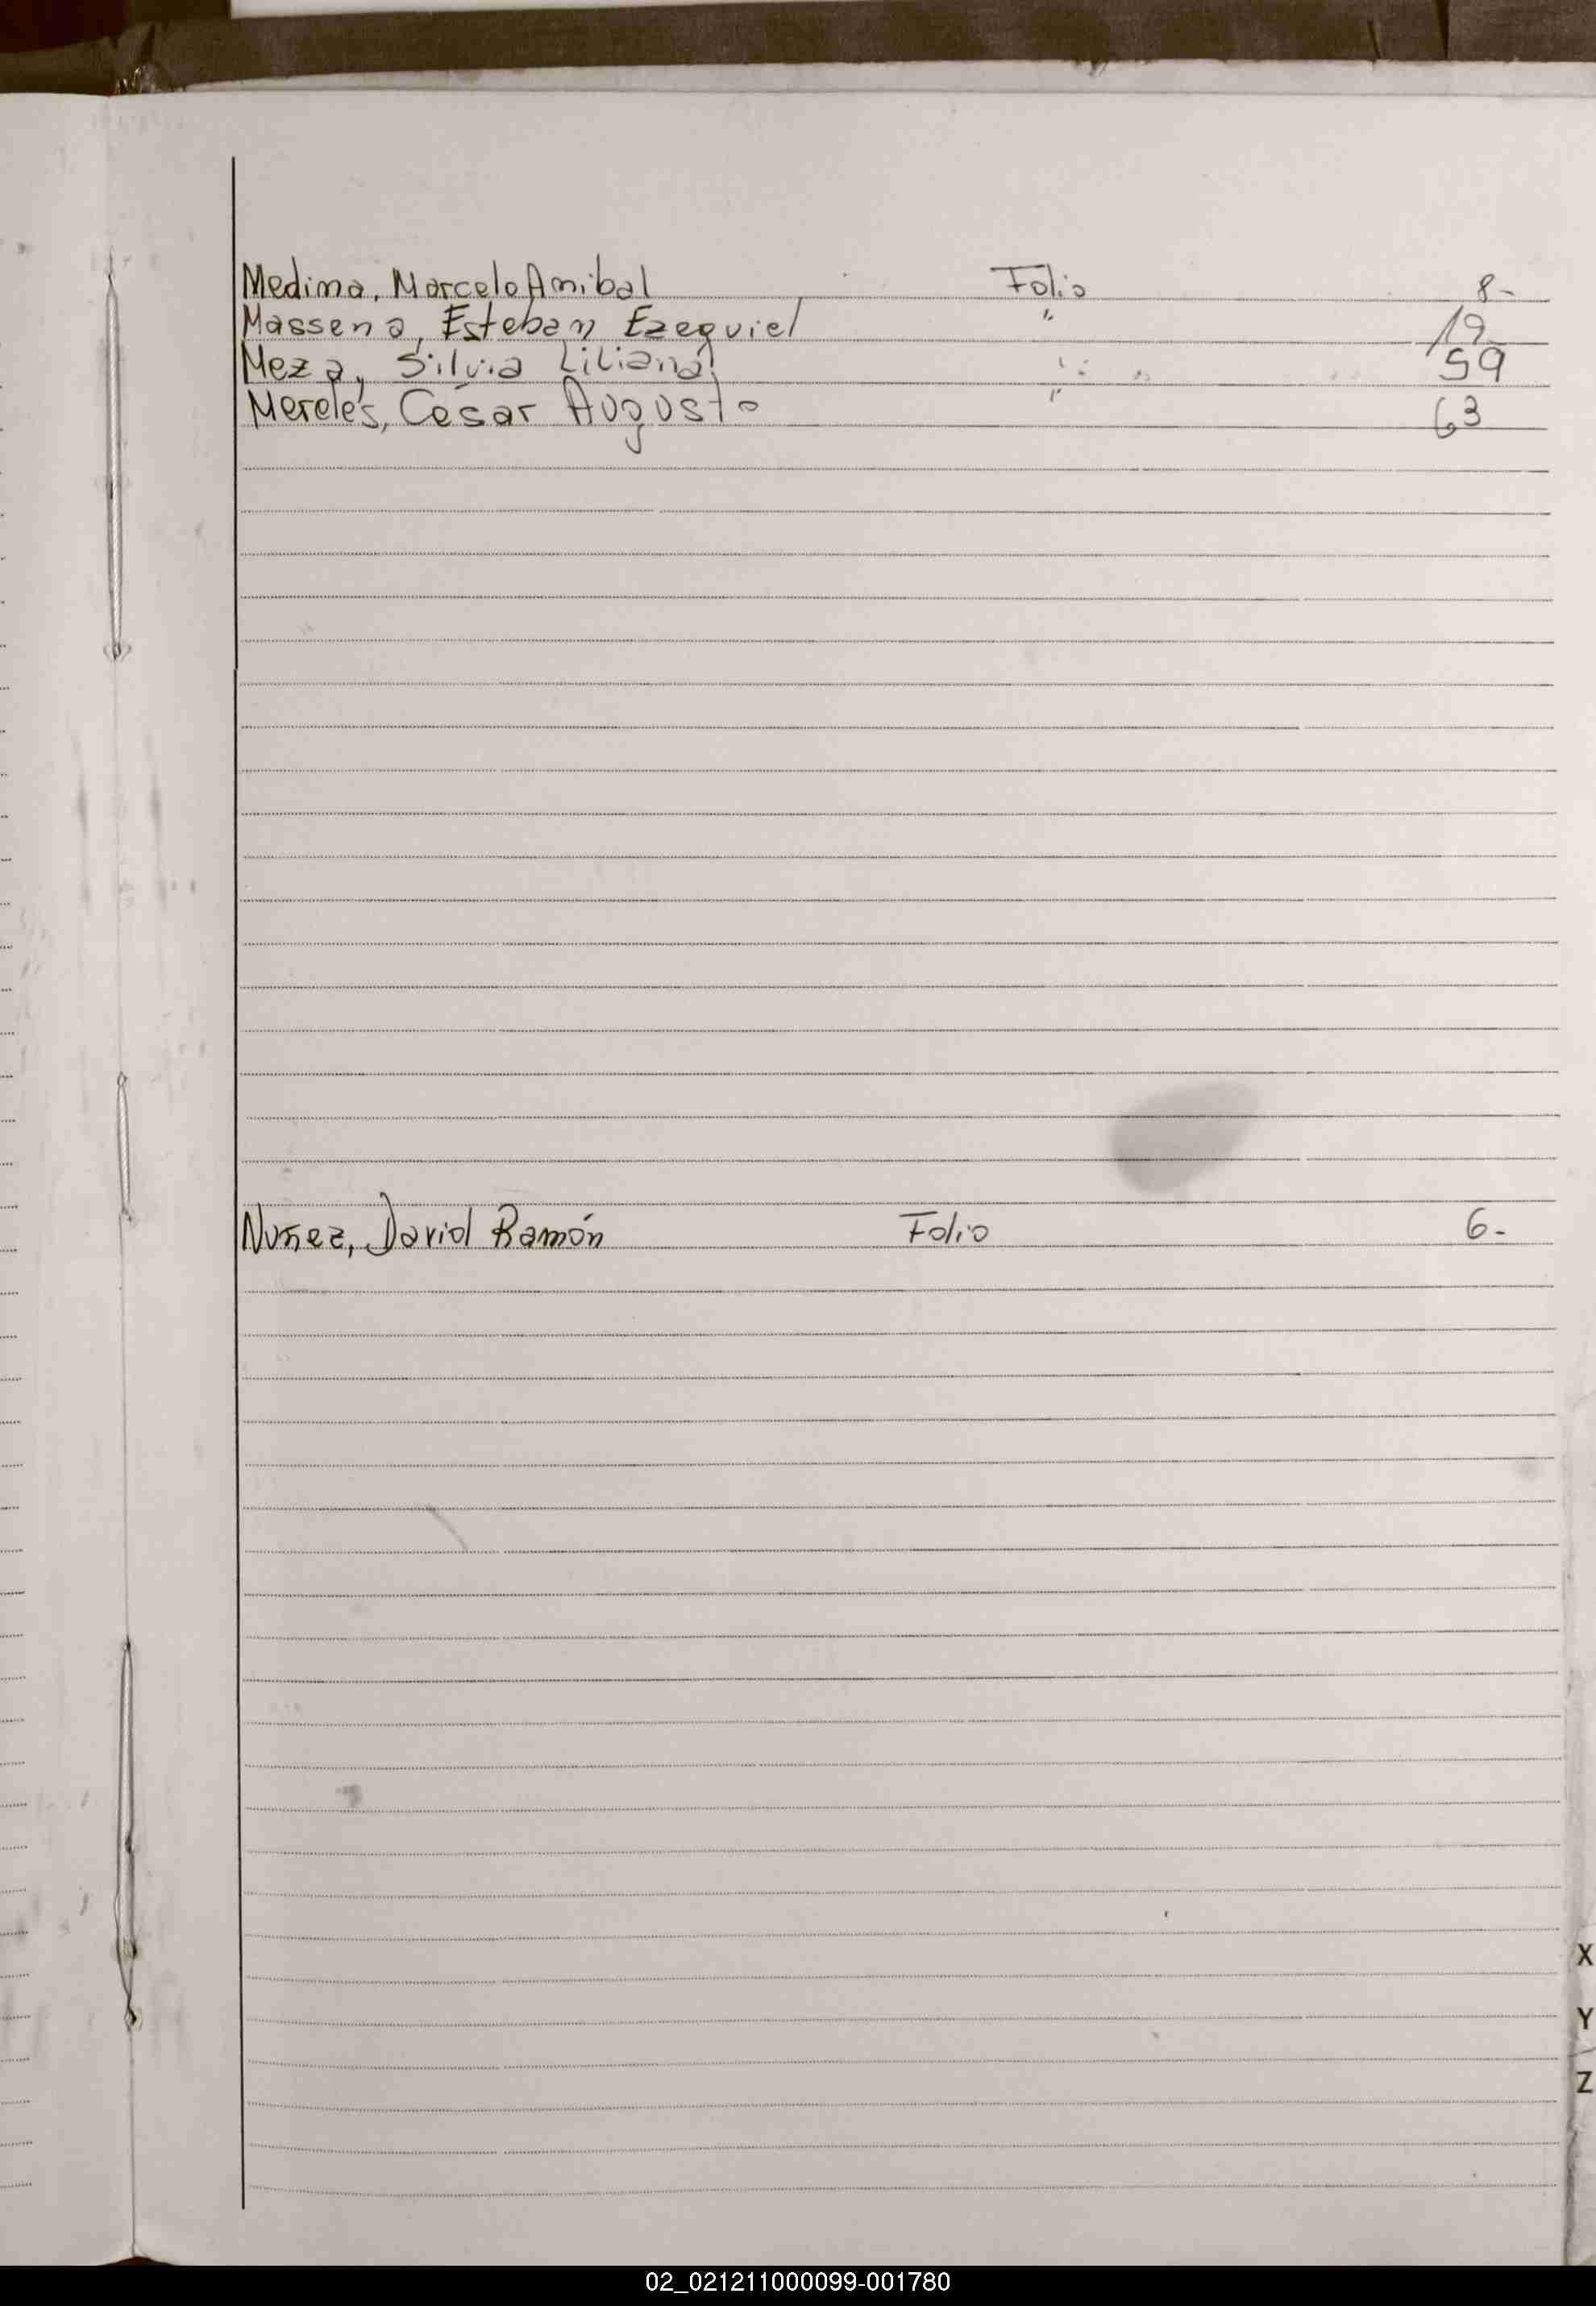 Medina, Marcelo Anibal Folio 8-
Massena, Esteban Ezequiel " 19
Meza, Silvia Liliana " 59
Mereles, César Augusto " 63
Nuñez, David Ramón Folio 6-
X
Y
Z
02_021211000099-001780